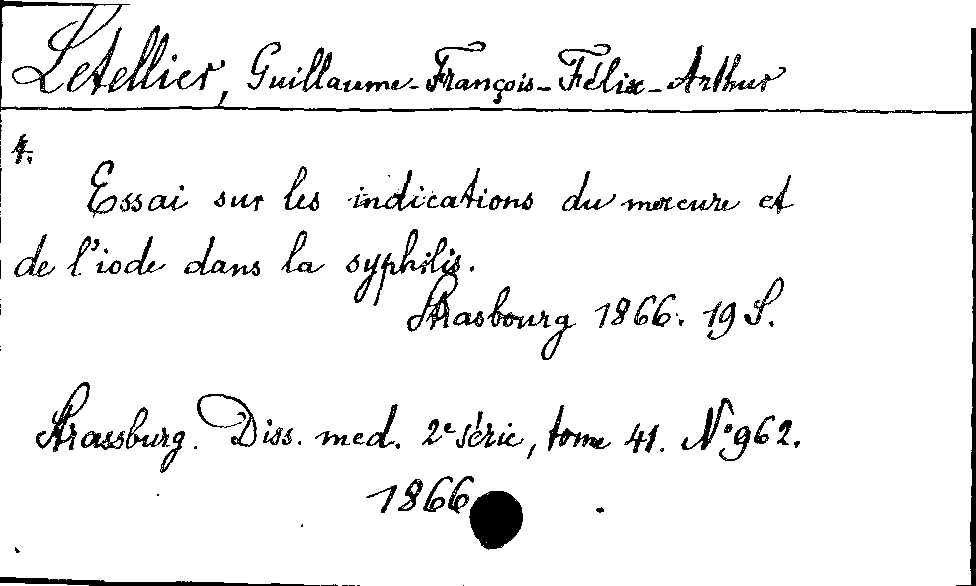 Letellier, Guillaume-François-Félix-Arthur
1.
Essai sur les indications du mercure et
de l'iode dans la syphilis.
Strasbourg 1866. 19 S.
Strassburg. Diss. med. 2e série, tome 41. No 962.
1866